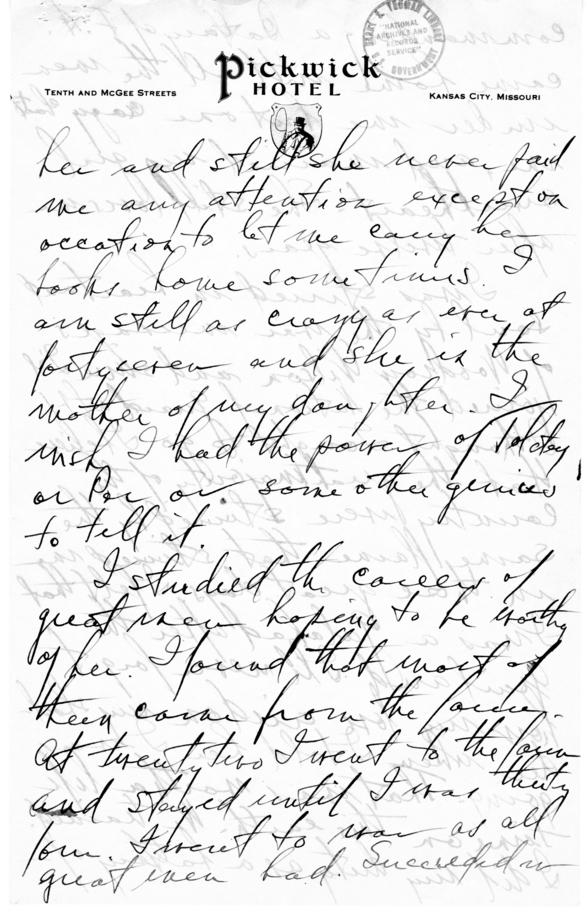 HARRY S. TRUMAN LIBRARY
"NATIONAL
ARCHIVES AND
RECORDS
SERVICE"
GOVERNMENT
Pickwick
HOTEL
TENTH AND MCGEE STREETS
KANSAS CITY, MISSOURI
her and still she never paid
me any attention except on
occation to let me carry her
books home sometimes. I
am still as crazy as ever at
fortyseven and she is the
mother of my daughter. I
wish I had the power of Tolstoy
or Poe or some other genius
to tell it.
I studied the careers of
great men hoping to be worthy
of her. I found that most of
them came from the farm.
At twenty two I went to the farm
and stayed until I was thirty
four. I went to war as all
great men had. Succeeded in